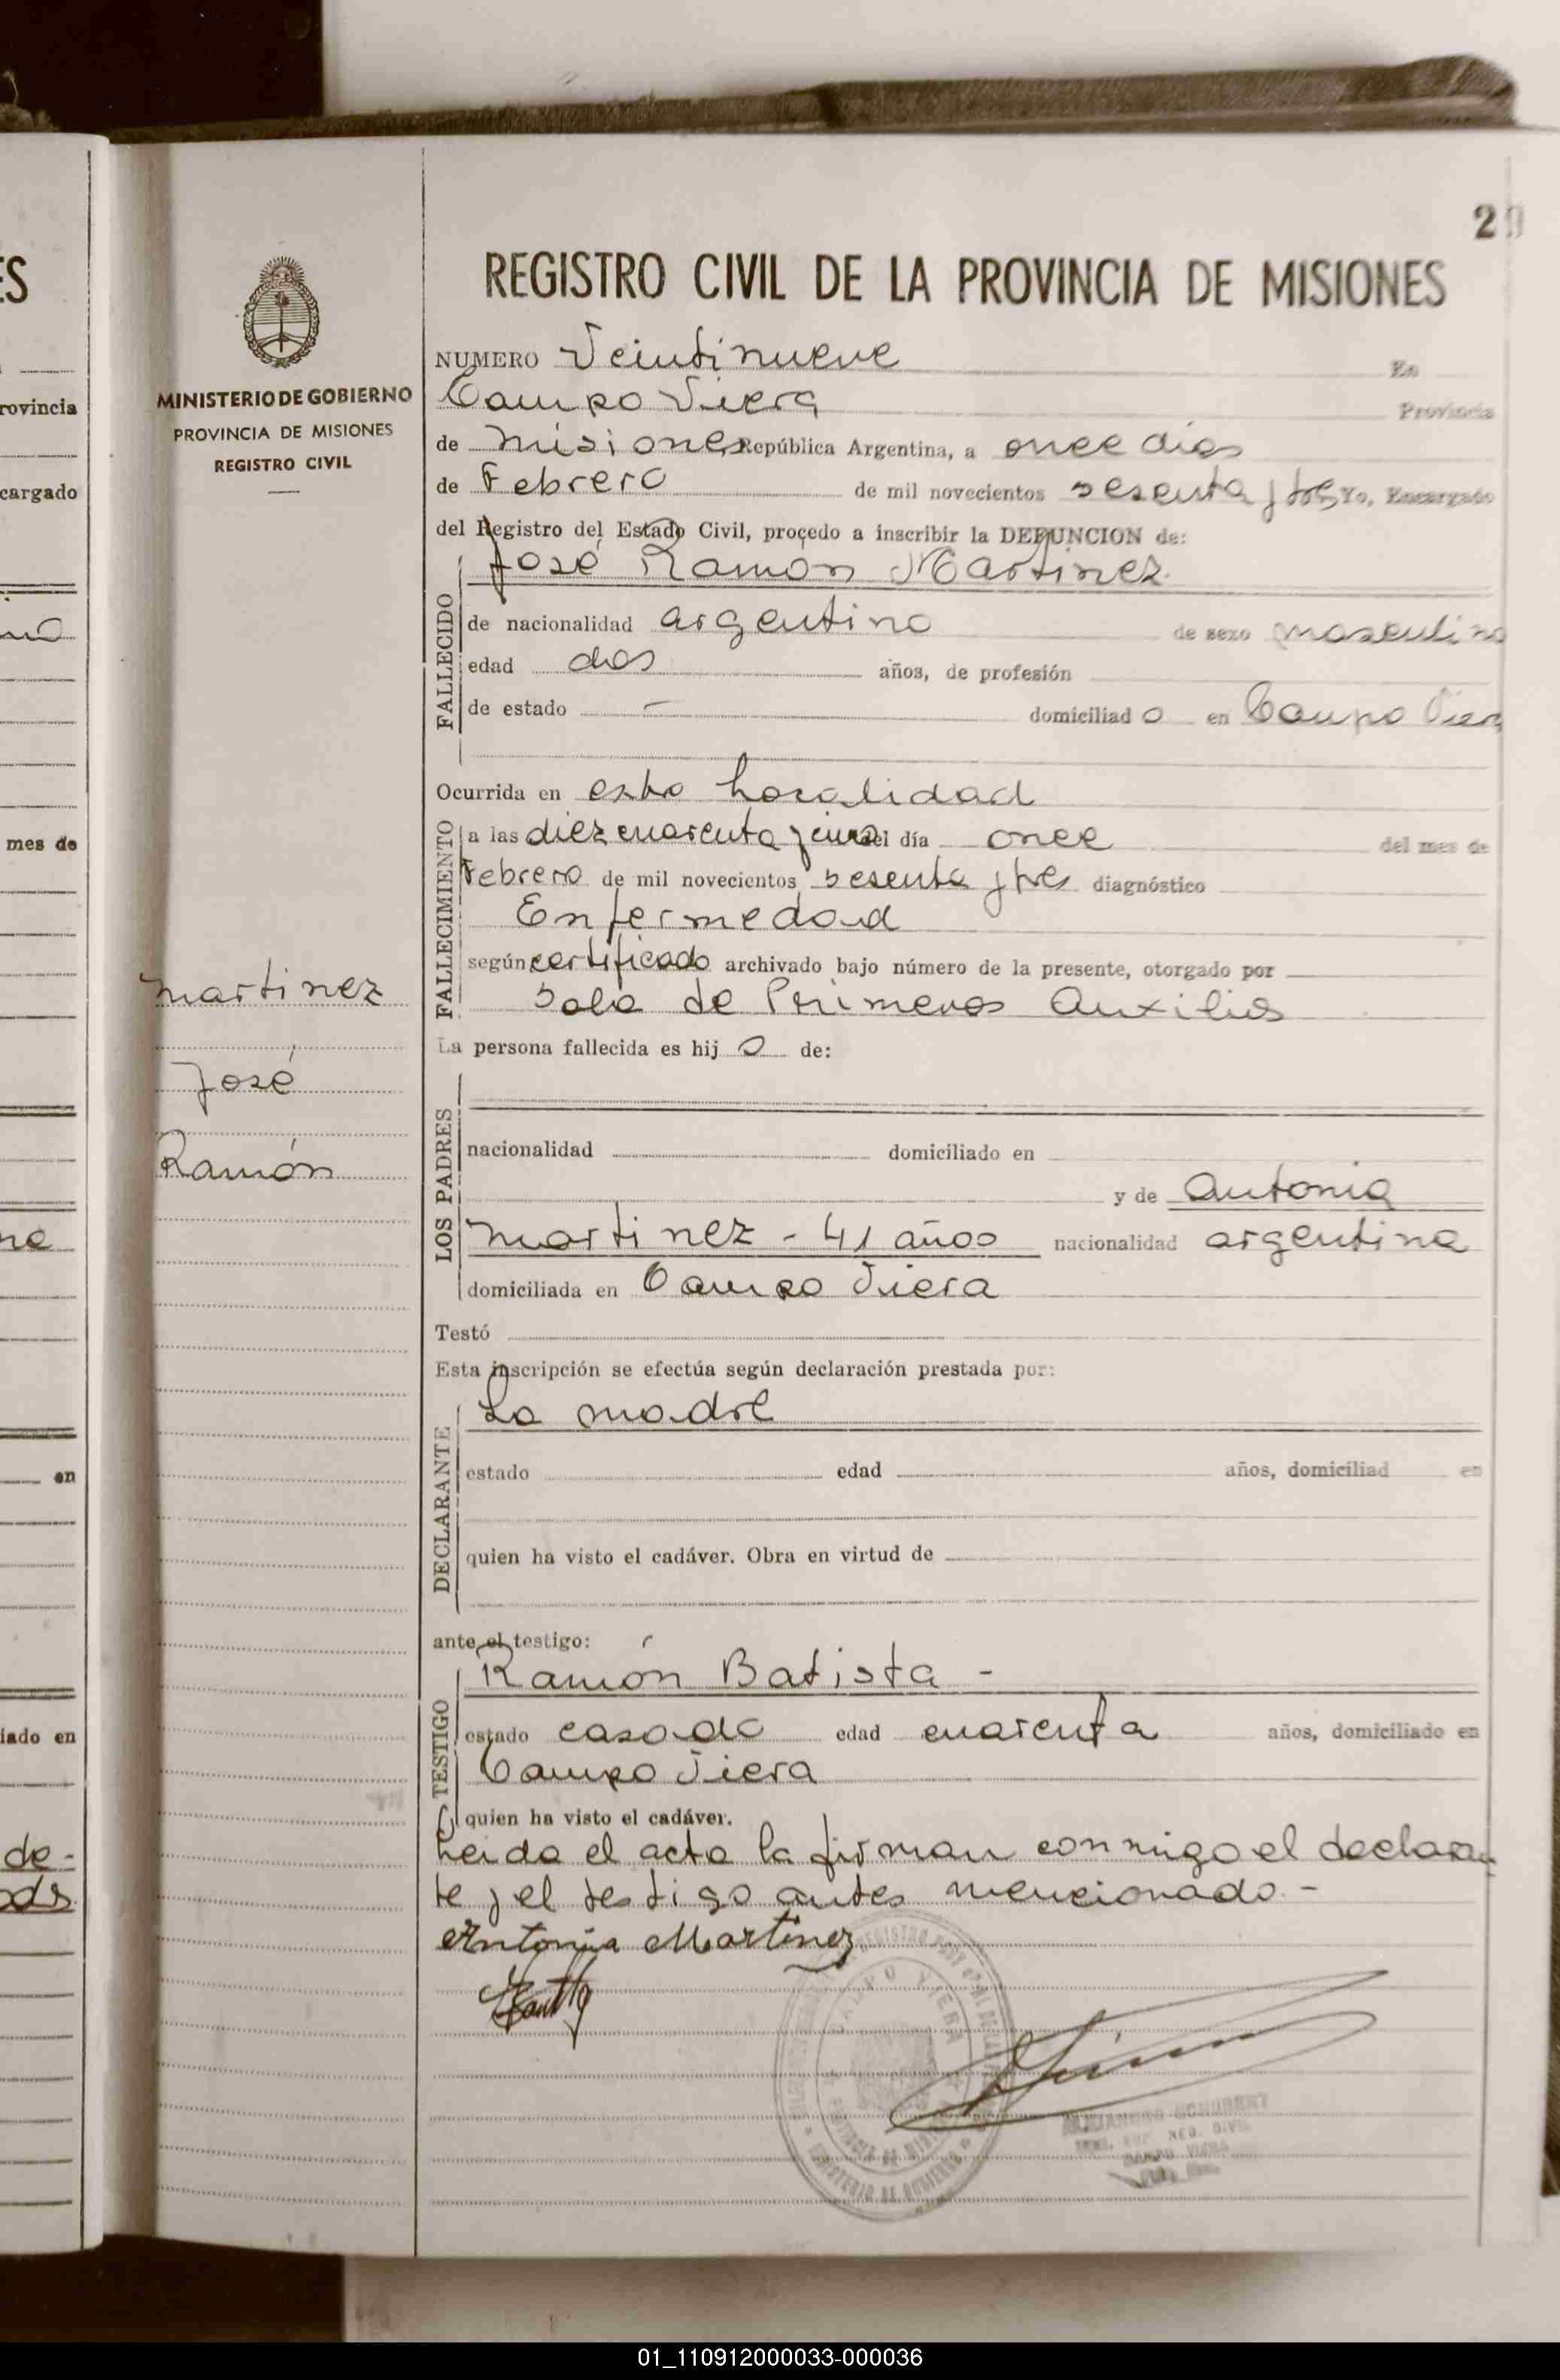 29
REGISTRO CIVIL DE LA PROVINCIA DE MISIONES
MINISTERIO DE GOBIERNO
PROVINCIA DE MISIONES
REGISTRO CIVIL
NUMERO Veintinueve En
Campo Viera Provincia
de Misiones República Argentina, a once dias
de Febrero de mil novecientos sesenta y tres Yo, Encargado
del Registro del Estado Civil, procedo a inscribir la DEFUNCION de:
José Ramón Martinez
FALLECIDO
de nacionalidad argentino de sexo masculino
edad dos años, de profesión
de estado — domiciliado en Campo Viera
Ocurrida en esta localidad
FALLECIMIENTO
a las diez cuarenta y cinco del día once del mes de
Febrero de mil novecientos sesenta y tres diagnóstico
Enfermedad
según certificado archivado bajo número de la presente, otorgado por
Sala de Primeros Auxilios
La persona fallecida es hijo de:
LOS PADRES
nacionalidad domiciliado en
y de Antonia
Martinez - 41 años nacionalidad argentina
domiciliada en Campo Viera
Testó
Esta inscripción se efectúa según declaración prestada por:
La madre
DECLARANTE
estado edad años, domiciliad en
quien ha visto el cadáver. Obra en virtud de
ante el testigo:
Ramón Batista -
TESTIGO
estado casado edad cuarenta años, domiciliado en
Campo Viera
quien ha visto el cadáver.
Leida el acta la firman conmigo el declaran
te y el testigo antes mencionado. -
Antonia Martinez
martinez
José
Ramón
ES
rovincia
cargado
mes de
en
iado en
de-
CAMPO VIERA
MINISTERIO DE GOBIERNO
01_110912000033-000036